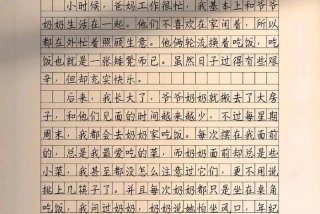 小时候，爸妈工作很忙，我基本上和爷爷
奶奶生活在一起。他们不喜欢在家闲着，所以
都在外忙着照顾生意。他俩轮流换着吃饭，吃
饭也就是一张矮凳而已。虽然日子过得有些艰
辛，但却充实快乐。
后来，我长大了，爷爷奶奶就搬去了大房
子，和他们见面的时间越来越少，不过每星期
周末，我都会去奶奶家吃饭。每次摆在我面前
的，总是我最爱吃的菜，而奶奶面前却总是些
小菜，我甚至都没怎么注意过它们，更不用说
挑上几筷子了。并且每次奶奶都只是坐在桌角
吃饭，我问过奶奶，奶奶说她怕坐风口，年纪